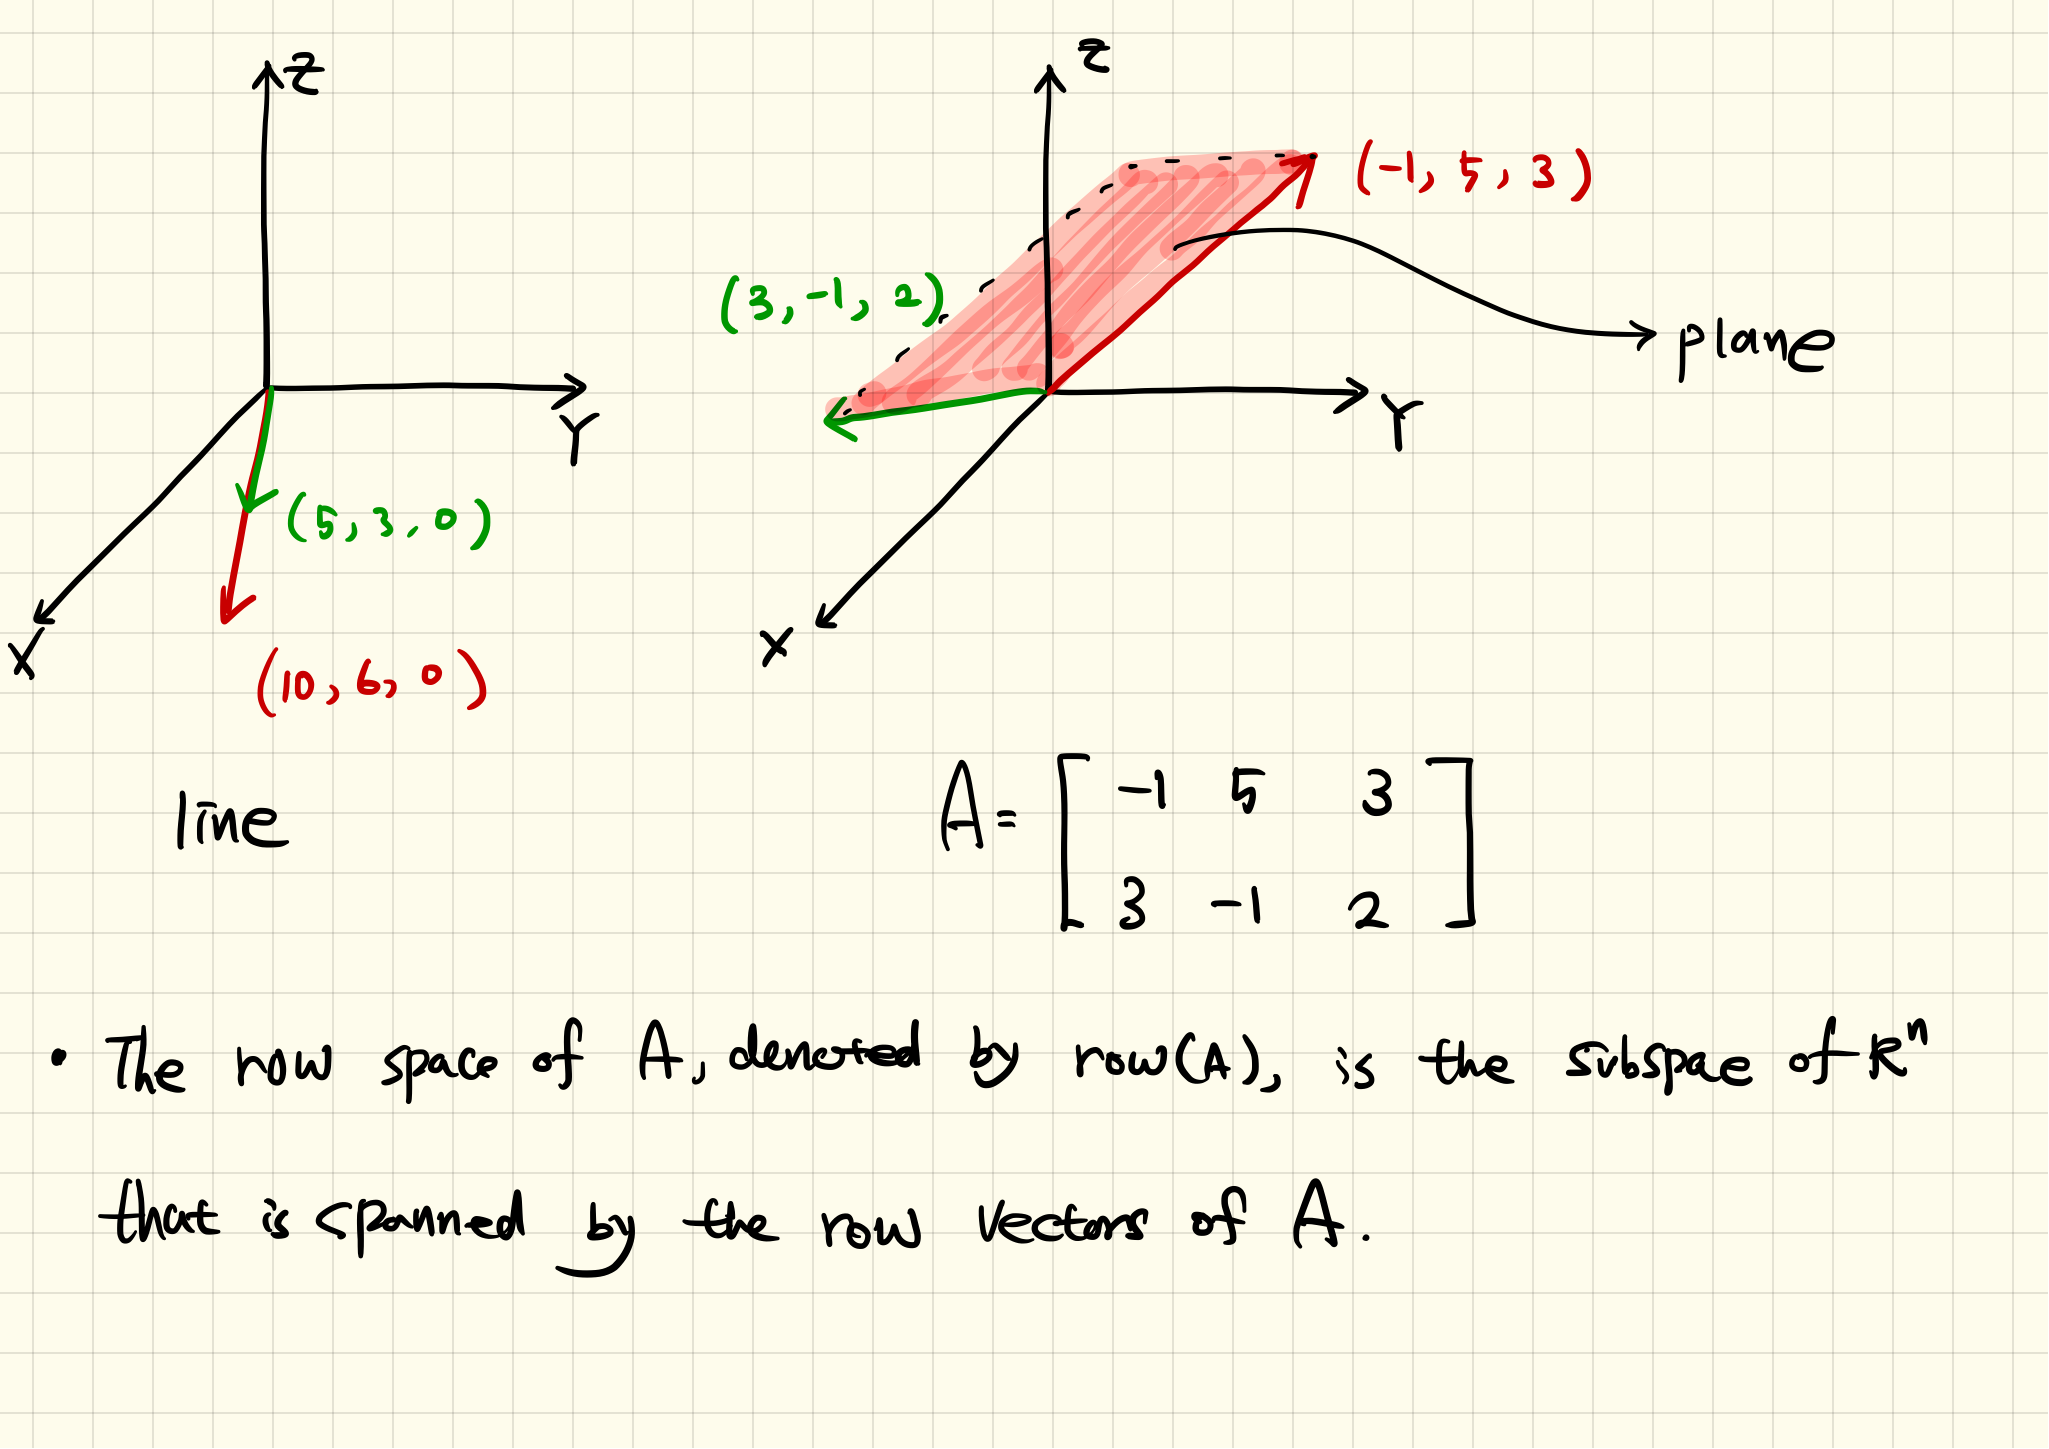 Z
Y
X
(5, 3, 0)
(10, 6, 0)
line
Z
(-1, 5, 3)
(3, -1, 2)
plane
Y
X
A = [ -1 5 3
3 -1 2 ]
• The row space of A, denoted by row(A), is the subspae of Rⁿ
that is spanned by the row vectors of A.